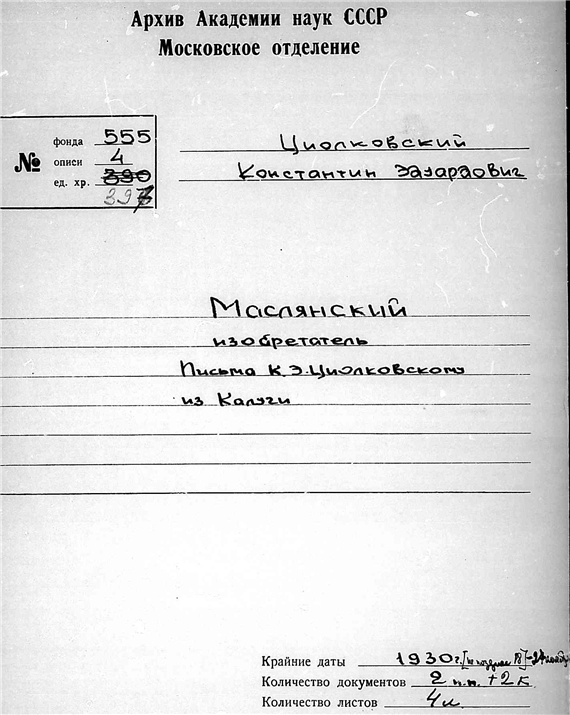 Архив Академии наук СССР
Московское отделение
№
фонда 555
описи 4
ед. хр. 390
397
Циолковский
Константин Эдуардович
Маслянский
изобретатель
Письма К.Э.Циолковскому
из Калуги
Крайние даты 1930г. [не позднее
Количество документов 2 п.п. +2 к
Количество листов 4 л